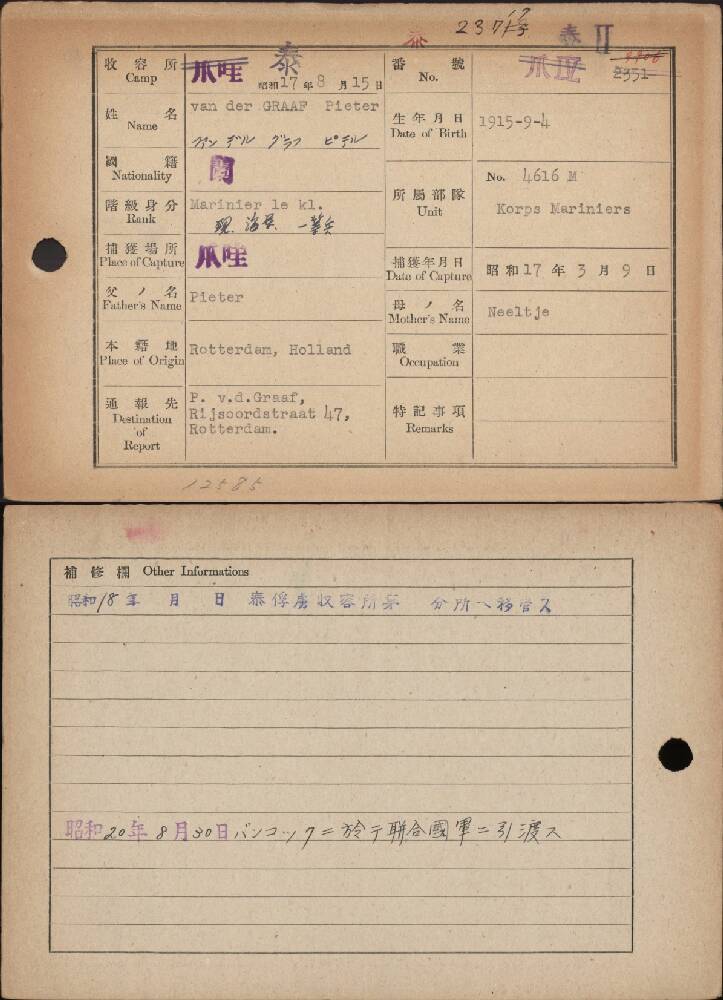 泰
泰 II
收容所 Camp 爪哇 泰 昭和17年8月15日
番號 No. 爪 2351
姓名 Name van der GRAAF Pieter
ファン デル グラフ ピーテル
生年月日 Date of Birth 1915-9-4
國籍 Nationality 蘭
階級身分 Rank Marinier 1e kl.
一等兵
所屬部隊 Unit No. 4616 M
Korps Mariniers
捕獲場所 Place of Capture 爪哇
捕獲年月日 Date of Capture 昭和17年3月9日
父ノ名 Father's Name Pieter
母ノ名 Mother's Name Neeltje
本籍地 Place of Origin Rotterdam, Holland
職業 Occupation
通報先 Destination of Report
P. v.d.Graaf,
Rijsoordstraat 47,
Rotterdam.
特記事項 Remarks
12585
補修欄 Other Informations
昭和18年 月 日 泰俘虜収容所第 分所ヘ移管ス
昭和20年8月30日バンコックニ於テ聯合國軍ニ引渡ス